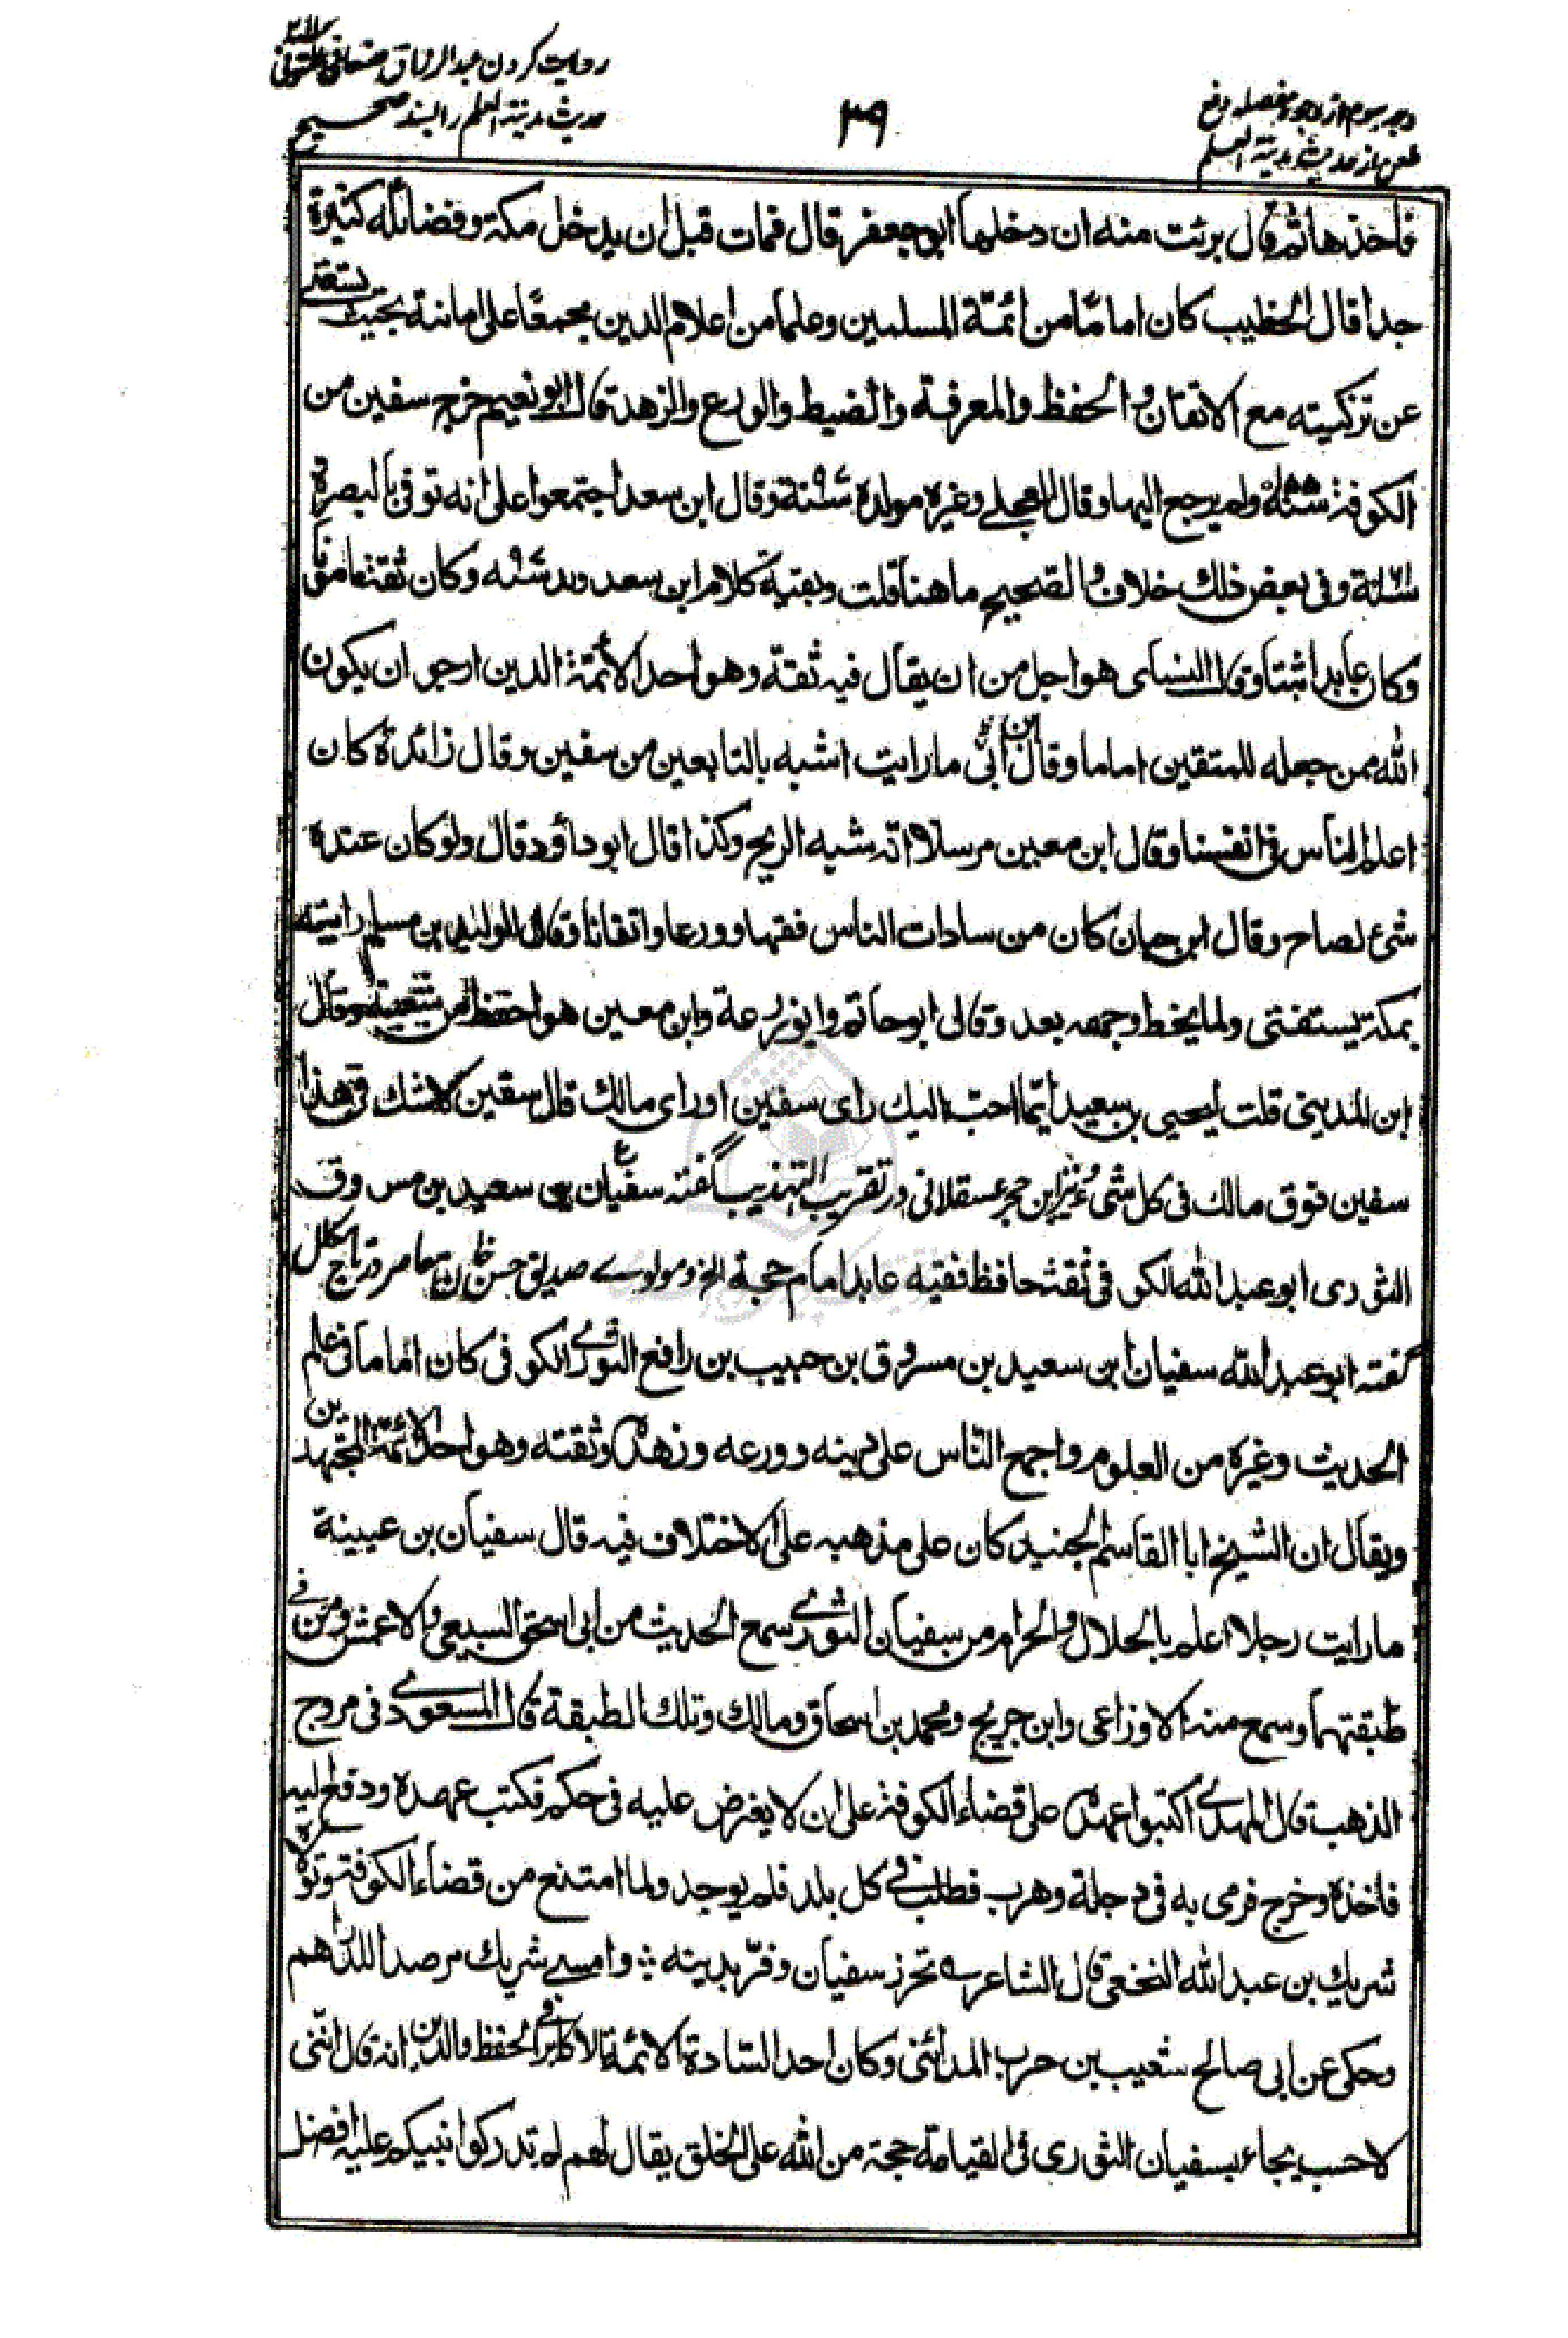 وجہ سوم از وجوہ مفصلہ دفع
طعن ما از حدیث مدینة العلم
۳۹
روایت کردن عبد الرزاق صنعانی المتوفی ۲۱۱
حدیث مدینة العلم را بسند صحیح
فاخذها ثم قال برئت منه ان دخلها ابو جعفر قال فمات قبل ان يدخل مكة وفضائله كثيرة
جدا قال الخطيب كان اماما من ائمة المسلمين وعلما من اعلام الدين مجمعا على امانته بحيث يستغنى
عن تزكيته مع الاتقان والحفظ والمعرفة والضبط والورع والزهد قال ابو نعيم خرج سفين من
الكوفة ولم يرجع اليها وقال العجلى وغيره مولده سنة ۹۷ وقال ابن سعد اجتمعوا على انه توفى بالبصرة
سنة ۱۶۱ وفى بعض ذلك خلاف والصحيح ما هنا قلت وبقية كلام ابن سعد ولد سنة ۹۷ وكان ثقة مامونا
وكان عابدا ثبتا وقال النسائى هو اجل من ان يقال فيه ثقة وهو احد الائمة الذين ارجو ان يكون
الله ممن جعله للمتقين اماما وقال ابن ابى ما رايت اشبه بالتابعين من سفين وقال زائدة كان
اعلم الناس فى انفسنا وقال ابن معين مرسلاته شبه الريح وكذا قال ابو داؤد قال ولو كان عنده
شئ لصاح وقال ابن حبان كان من سادات الناس فقها وورعا واتقانا وقال الوليد بن مسلم رايته
بمكة يستفتى ولما يخط وجهه بعد وقال ابو حاتم وابو زرعة وابن معين هو احفظ من شعبة وقال
ابن المدينى قلت ليحيى بن سعيد ايما احب اليك راى سفين او راى مالك قال سفين لا شك فى هذا
سفين فوق مالك فى كل شئ و نیز ابن حجر عسقلانی در تقریب التهذیب گفته سفيان بن سعيد بن مسروق
الثورى ابو عبد الله الكوفى ثقة حافظ فقيه عابد امام حجة الخ و مولوی صدیق حسن خان معاصر در تاج مکلل
گفته ابو عبد الله سفيان ابن سعيد بن مسروق بن حبيب بن رافع الثورى الكوفى كان اماما فى علم
الحديث وغيره من العلوم واجمع الناس على دينه وورعه وزهده وثقته وهو احد الائمة المجتهدين
ويقال ان الشيخ ابا القاسم الجنيد كان على مذهبه على الاختلاف فيه قال سفيان بن عيينة
ما رايت رجلا اعلم بالحلال والحرام من سفيان الثورى سمع الحديث من ابى اسحق السبيعى والاعمش ومن فى
طبقتهما وسمع منه الاوزاعى وابن جريج ومحمد بن اسحاق ومالك وتلك الطبقة قال المسعودى فى مروج
الذهب قال المهدى اكتبوا عهده على قضاء الكوفة على ان لا يعترض عليه فى حكم فكتب عهده ودفع اليه
فاخذه وخرج فرمى به فى دجلة وهرب فطلب فى كل بلد فلم يوجد ولما امتنع من قضاء الكوفة وتولاه
شريك بن عبد الله النخعى قال الشاعر تحرز سفيان وفر بدينه وامسى شريك مرصدا للدراهم
وحكى عن ابى صالح شعيب بن حرب المدائنى وكان احد السادة الائمة الاكابر فى الحفظ والدين انه قال انى
لاحسب يجاء بسفيان الثورى فى القيامة حجة من الله على الخلق يقال لهم لم تدركوا نبيكم عليه افضل